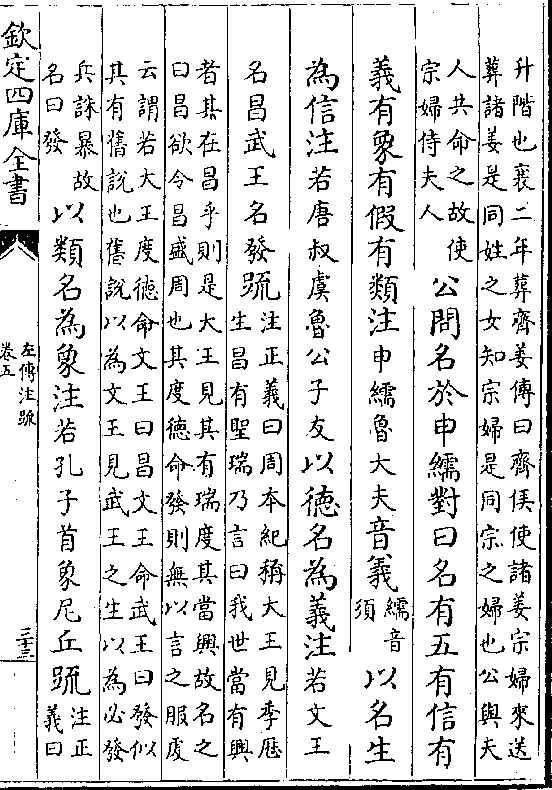 升階也襄二年葬齊姜傳曰齊侯使諸姜宗婦來送
葬諸姜是同姓之女知宗婦是同宗之婦也公與夫
人共命之故使
宗婦侍夫人
公問名於申繻對曰名有五有信有
義有象有假有類注申繻魯大夫音義
繻音
須
以名生
為信注若唐叔虞魯公子友以德名為義注若文王
名昌武王名發疏
注正義曰周本紀稱大王見季歴
生昌有聖瑞乃言曰我世當有興
者其在昌乎則是大王見其有瑞度其當興故名之
曰昌欲令昌盛周也其度德命發則無以言之服虔
云謂若大王度徳命文王曰昌文王命武王曰發似
其有舊說也舊說以為文王見武王之生以為必發
兵誅暴故
名曰發
以類名為象注若孔子首象尼丘疏
注正
義曰
欽定四庫全書
左傳注疏
卷五
三十三